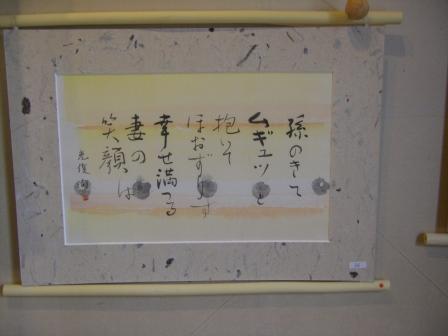 孫のきて
ムギュッと
抱いて
ほおずりす
幸せ満つる
妻の
笑顔は